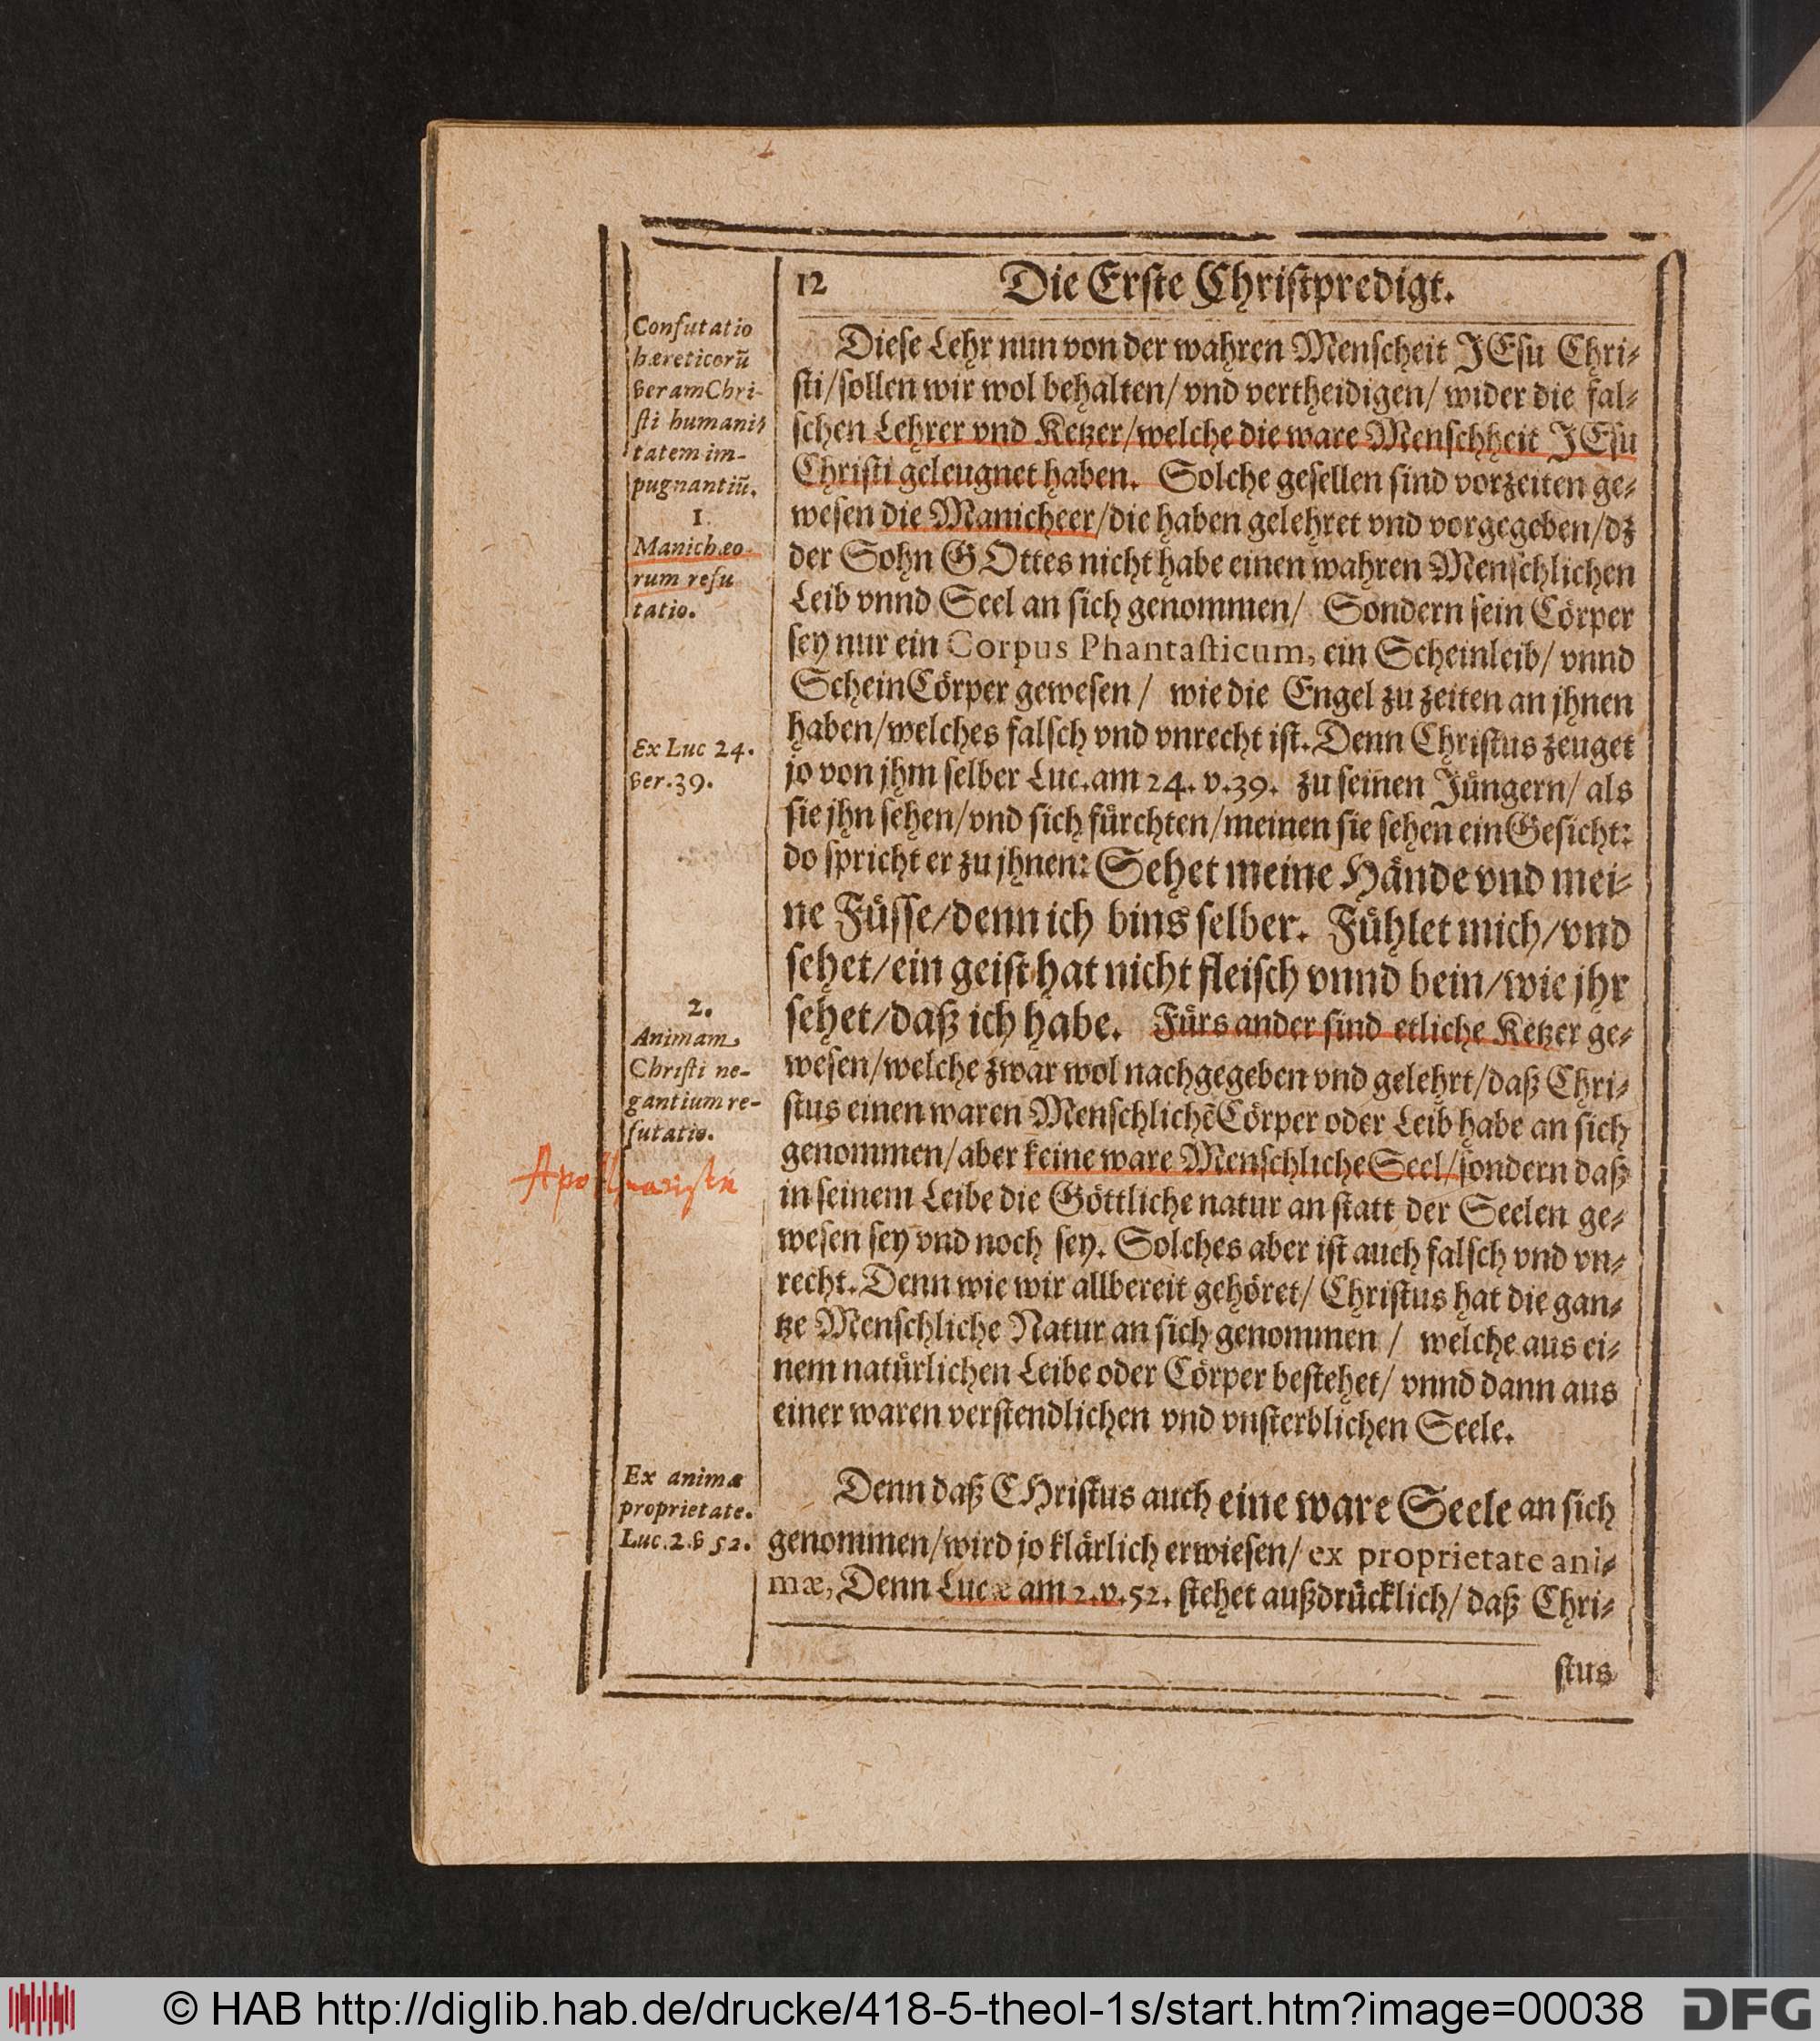 12 Die Erste Christpredigt.
Confutatio
hæreticorũ
veram Chri-
sti humani-
tatem im-
pugnantiũ.
1
Manichæo-
rum refu
tatio.
Ex Luc 24.
ver. 39.
2.
Animam
Christi ne-
gantium re-
futatio.
Apollinaristæ
Ex animæ
proprietate.
Luc. 2. v 52.
Diese Lehr nun von der wahren Menscheit JEsu Chri-
sti/sollen wir wol behalten/ vnd vertheidigen/ wider die fal-
schen Lehrer vnd Ketzer/welche die ware Menschheit JEsu
Christi geleugnet haben. Solche gesellen sind vorzeiten ge-
wesen die Manicheer/die haben gelehret vnd vorgegeben/dz
der Sohn GOttes nicht habe einen wahren Menschlichen
Leib vnnd Seel an sich genommen/ Sondern sein Cörper
sey nur ein Corpus Phantasticum, ein Scheinleib/ vnnd
ScheinCörper gewesen/ wie die Engel zu zeiten an jhnen
haben/welches falsch vnd vnrecht ist. Denn Christus zeuget
jo von jhm selber Luc. am 24. v. 39. zu seinen Jüngern/ als
sie jhn sehen/vnd sich fürchten/meinen sie sehen ein Gesicht:
do spricht er zu jhnen: Sehet meine Hände vnd mei-
ne Füsse/denn ich bins selber. Fühlet mich/vnd
sehet/ein geist hat nicht fleisch vnnd bein/wie jhr
sehet/daß ich habe. Fürs ander sind etliche Ketzer ge-
wesen/welche zwar wol nachgegeben vnd gelehrt/daß Chri-
stus einen waren Menschlichē Cörper oder Leib habe an sich
genommen/aber keine ware Menschliche Seel/sondern daß
in seinem Leibe die Göttliche natur an statt der Seelen ge-
wesen sey vnd noch sey. Solches aber ist auch falsch vnd vn-
recht. Denn wie wir allbereit gehöret/ Christus hat die gan-
tze Menschliche Natur an sich genommen/ welche aus ei-
nem natürlichen Leibe oder Cörper bestehet/ vnnd dann aus
einer waren verstendlichen vnd vnsterblichen Seele.
Denn daß CHristus auch eine ware Seele an sich
genommen/wird jo klärlich erwiesen/ ex proprietate ani-
mæ, Denn Lucæ am 2. v. 52. stehet außdrücklich/ daß Chri-
stus
© HAB http://diglib.hab.de/drucke/418-5-theol-1s/start.htm?image=00038
DFG